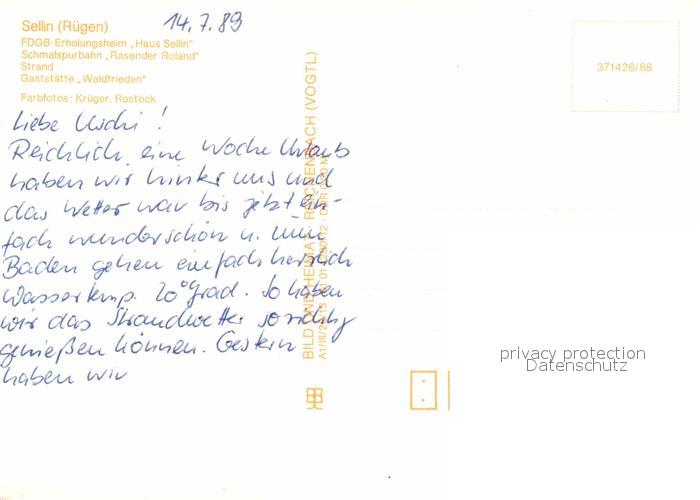 Sellin (Rügen)
14.7.89
FDGB-Erholungsheim „Haus Sellin"
Schmalspurbahn „Rasender Roland"
Strand
Gaststätte „Waldfrieden"
Farbfotos: Krüger, Rostock
371426/88
Liebe Uschi!
Reichlich eine Woche Urlaub
haben wir hinter uns und
das Wetter war bis jetzt ein-
fach wunderschön u. zum
Baden gehen einfach herrlich
Wassertemp. 20° Grad. So haben
wir das Strandwetter so richtig
genießen können. Gestern
haben wir
BILD UND HEIMAT REICHENBACH (VOGTL)
A1/III/26/13
privacy protection
Datenschutz